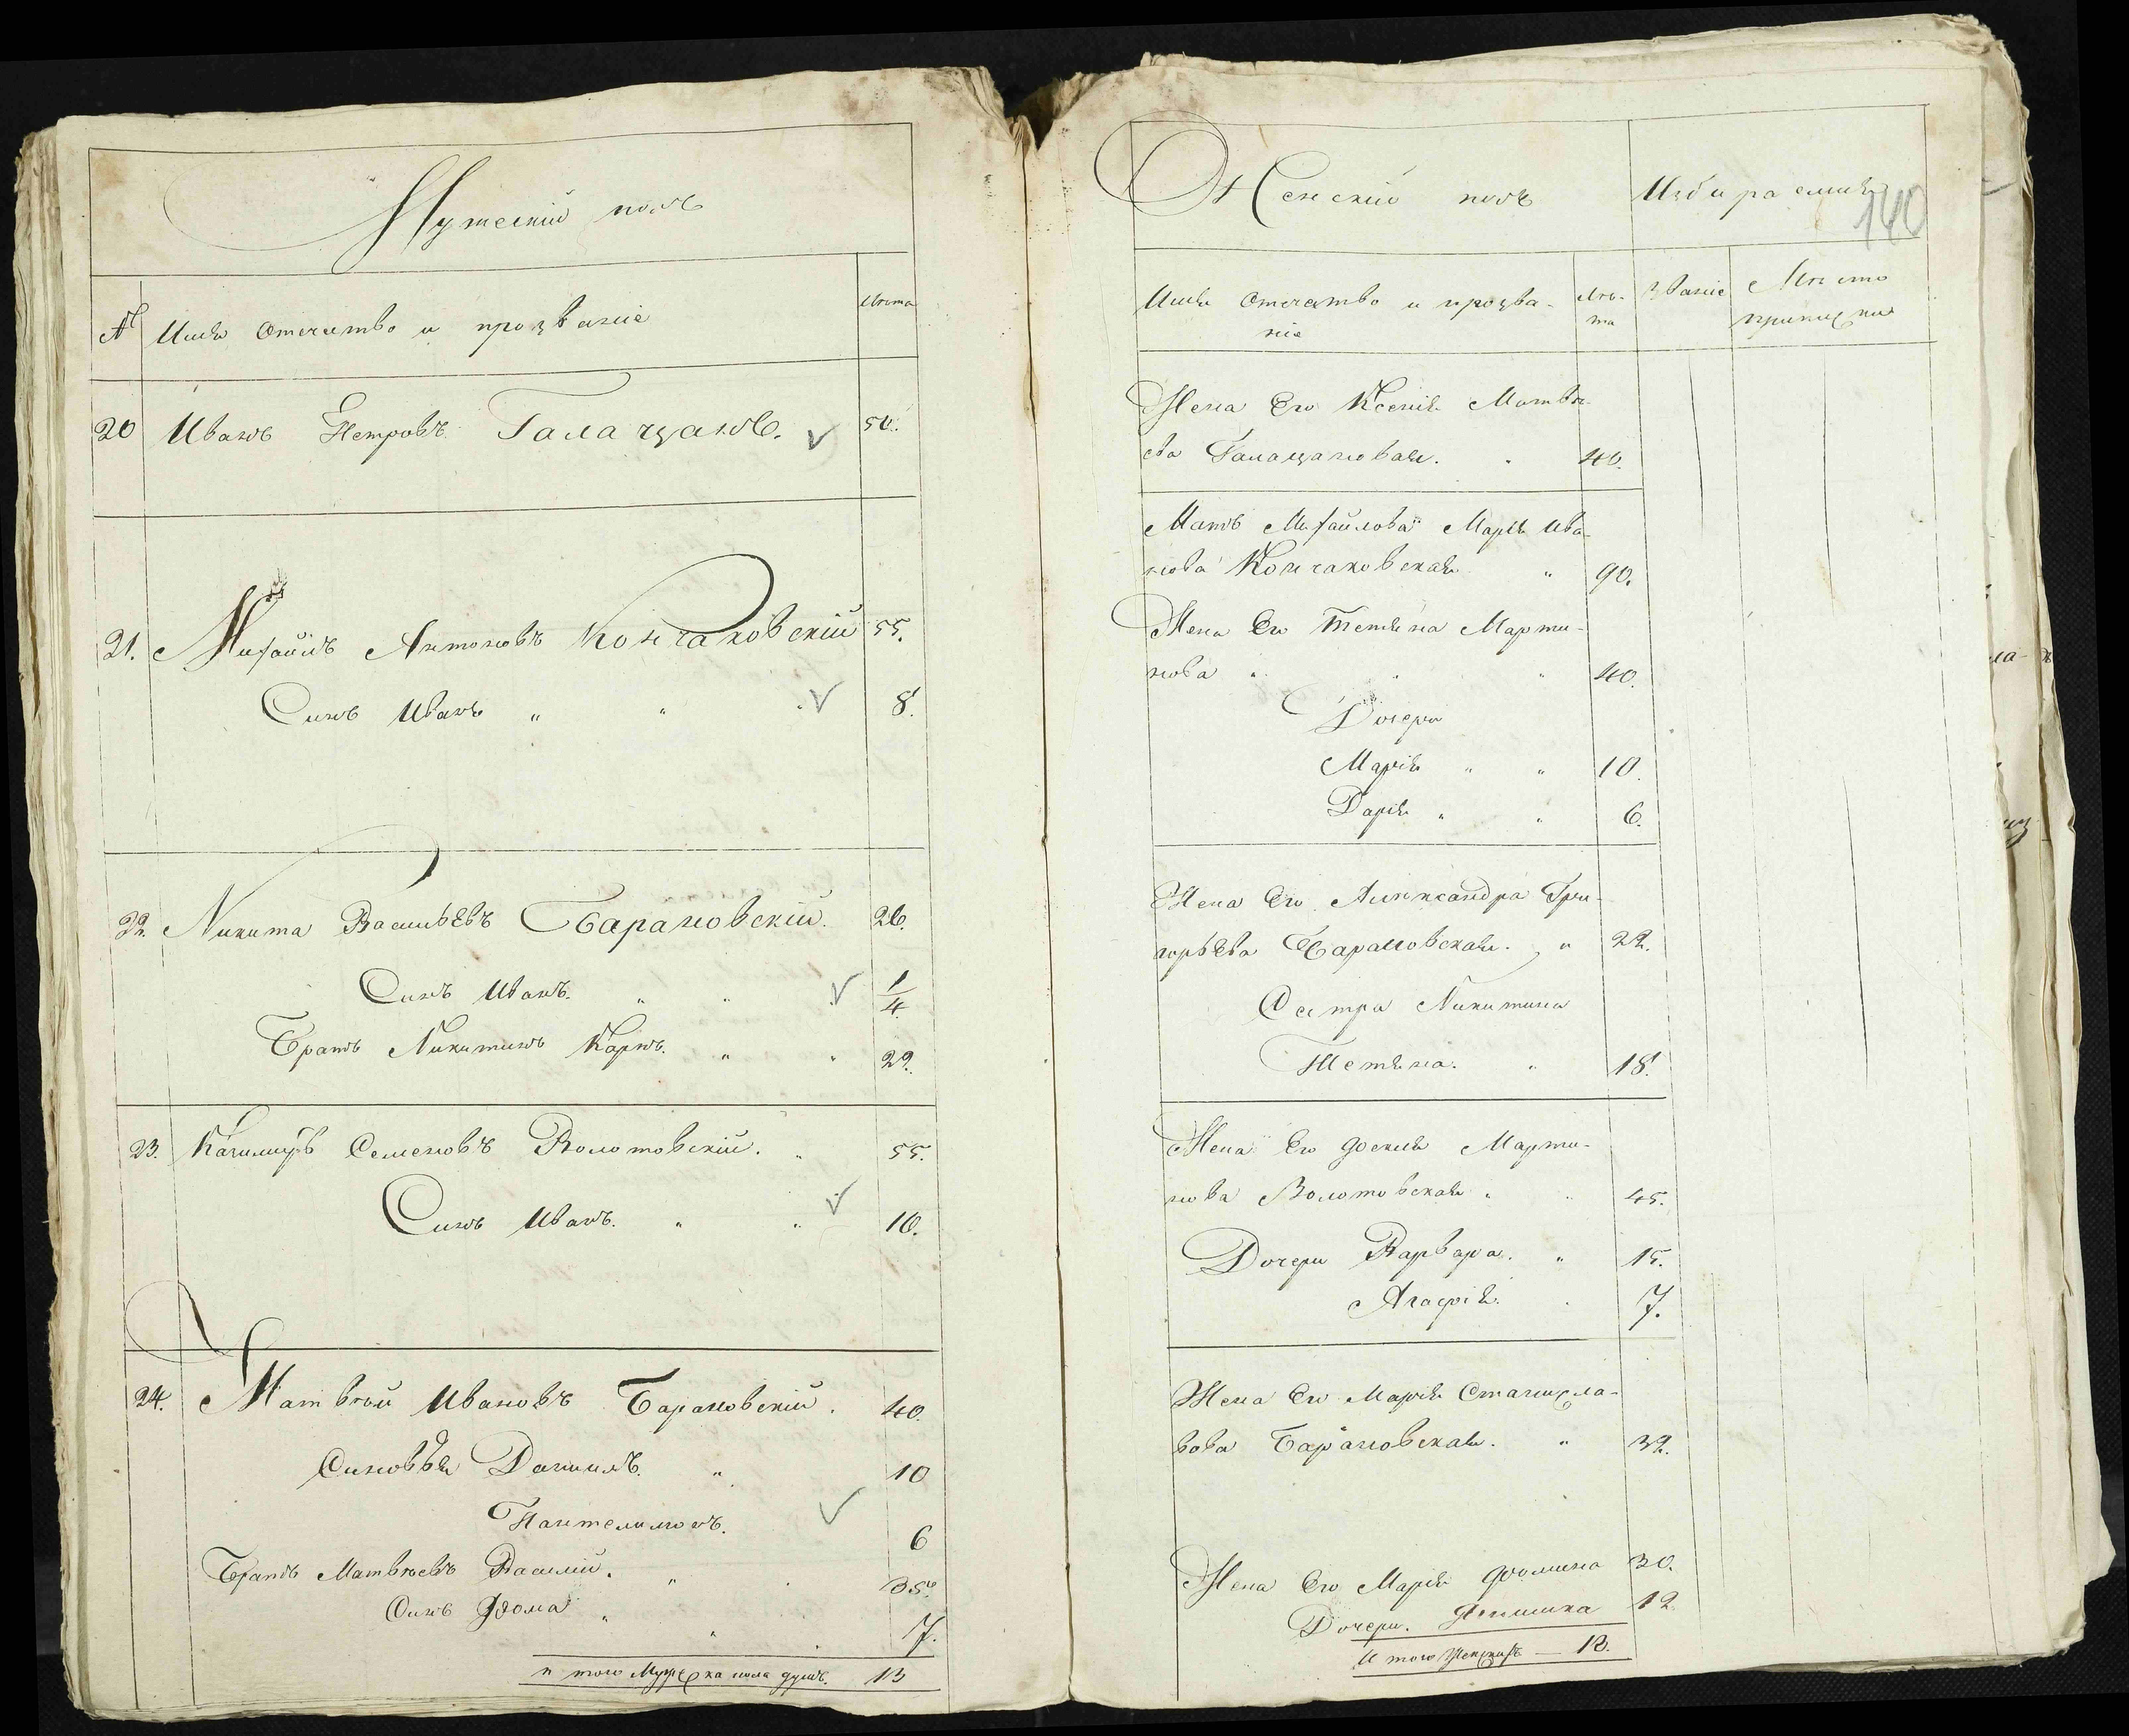 Мужескій полъ
№ Имя Отечество и прозваніе Лѣта
20 Иванъ Петровъ Галацанъ. 50.
21. Михаилъ Антоновъ Кончаковскій 55.
Синъ Иванъ " " 8.
22. Никита Васильевъ Барановскій. 26.
Синъ Иванъ. " " 1/4
Братъ Никитинъ Карпъ. " " 22.
23. Казимиръ Семеновъ Волотовскій. " 55.
Синъ Иванъ. " " 10.
24. Матвѣй Ивановъ Барановскій. 40.
Синовья Даниилъ. " 10
Пантелимонъ. 6
Братъ Матвѣевъ Василій. " 35.
Синъ Фома " " 7.
и того Мужеска пола душъ. 13
Женскій полъ Избираемия
140
Имя Отечатво и прозва- Лѣ- Званіе Мѣсто
ніе та приписки
Жена Его Ксенія Матвѣ-
ева Галацановая. " 40.
Мать Михайлова Марія Ива-
нова Кончаковская " 90.
Жена Его Тетяна Марти-
нова " " " 40.
Дочери
Марія " " 10.
Дарія " " 6.
Жена Его Александра Гри-
горьева Барановская. " 22.
Сестра Никитина
Тетяна. " 18.
Жена Его Феския Марти-
нова Волотовская " " 45.
Дочери Варвара. " 15.
Агафія. 7.
Жена Его Марія Станисла-
вова Барановская. " 32.
Жена Его Марія Фомина 30.
Дочери. 12
И того Женскихъ — 13.